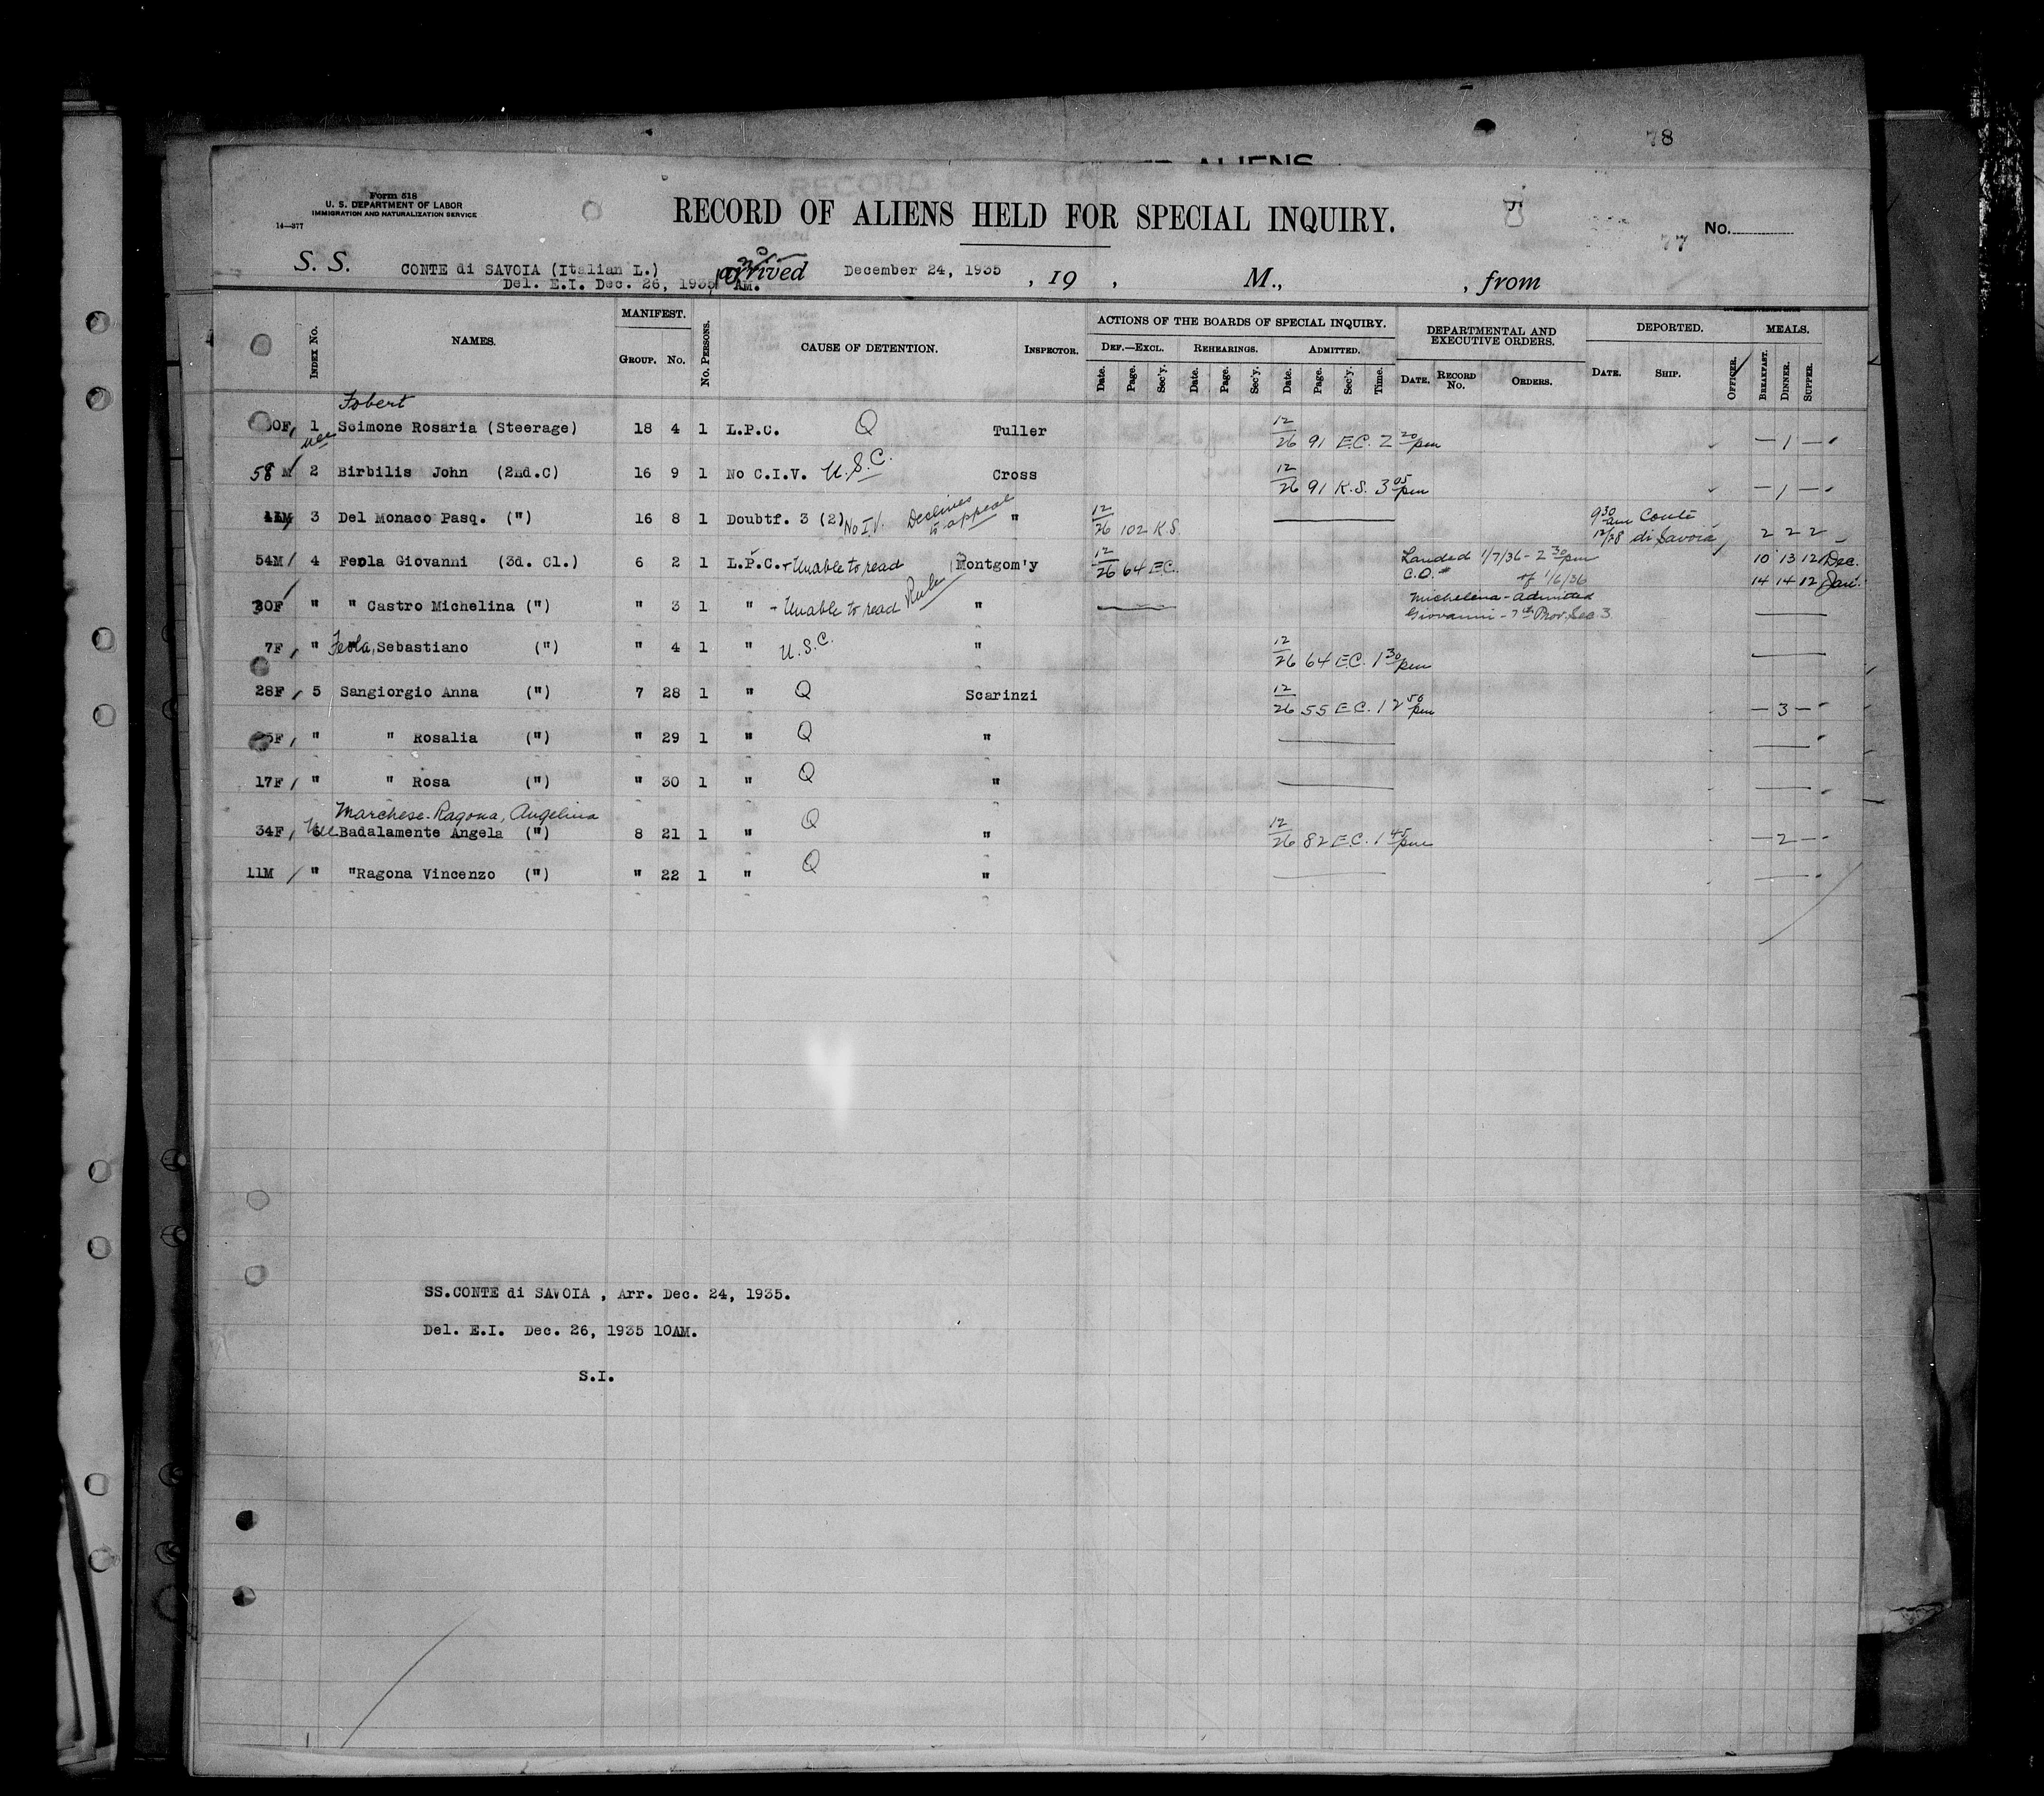 78
ALIENS
Form 518
U. S. DEPARTMENT OF LABOR
IMMIGRATION AND NATURALIZATION SERVICE
14—377
RECORD OF ALIENS HELD FOR SPECIAL INQUIRY.
77
No.
S. S. CONTE di SAVOIA (Italian L.) arrived December 24, 1935 , 19 , M., , from
Del. E.I. Dec. 26, 1935 AM.
INDEX No. NAMES. MANIFEST. GROUP. No. No. PERSONS. CAUSE OF DETENTION. INSPECTOR. ACTIONS OF THE BOARDS OF SPECIAL INQUIRY. DEPARTMENTAL AND EXECUTIVE ORDERS. DEPORTED. MEALS.
DEF.—EXCL. REHEARINGS. ADMITTED.
Date. Page. Sec'y. Date. Page. Sec'y. Date. Page. Sec'y. Time. DATE. RECORD No. ORDERS. DATE. SHIP. OFFICER. BREAKFAST. DINNER. SUPPER.
Fobert
0F, 1 Scimone Rosaria (Steerage) 18 4 1 L.P.C. Q Tuller 12/26 91 E.C. 2 20 pm — 1 —
nee
58 M 2 Birbilis John (2nd.C) 16 9 1 No C.I.V. U.S.C. Cross 12/26 91 K.S. 3 05 pm — 1 —
3 Del Monaco Pasq. (") 16 8 1 Doubtf. 3 (2) No I.V. Declines to appeal " 12/26 102 K.S. 9 30 am Conte 12/28 di Savoia 2 2 2
54M 4 Feola Giovanni (3d. Cl.) 6 2 1 L.P.C. + Unable to read Montgom'y 12/26 64 E.C. Landed 1/7/36 - 2 30 pm 10 13 12 Dec.
C.O. of 1/6/36 14 14 12 Jan.
30F " " Castro Michelina (") " 3 1 " - Unable to read " Michelena - admitted
Giovanni - 7th Prov. Sec. 3
7F, " Feola, Sebastiano (") " 4 1 " U.S.C. " 12/26 64 E.C. 1 30 pm
28F 5 Sangiorgio Anna (") 7 28 1 " Q Scarinzi 12/26 55 E.C. 12 50 pm — 3 —
5F, " " Rosalia (") " 29 1 " Q "
17F " " Rosa (") " 30 1 " Q "
Marchese-Ragona, Angelina
34F, 6 Badalamente Angela (") 8 21 1 " Q " 12/26 82 E.C. 1 45 pm — 2 —
11M " "Ragona Vincenzo (") " 22 1 " Q "
SS.CONTE di SAVOIA , Arr. Dec. 24, 1935.
Del. E.I. Dec. 26, 1935 10AM.
S.I.